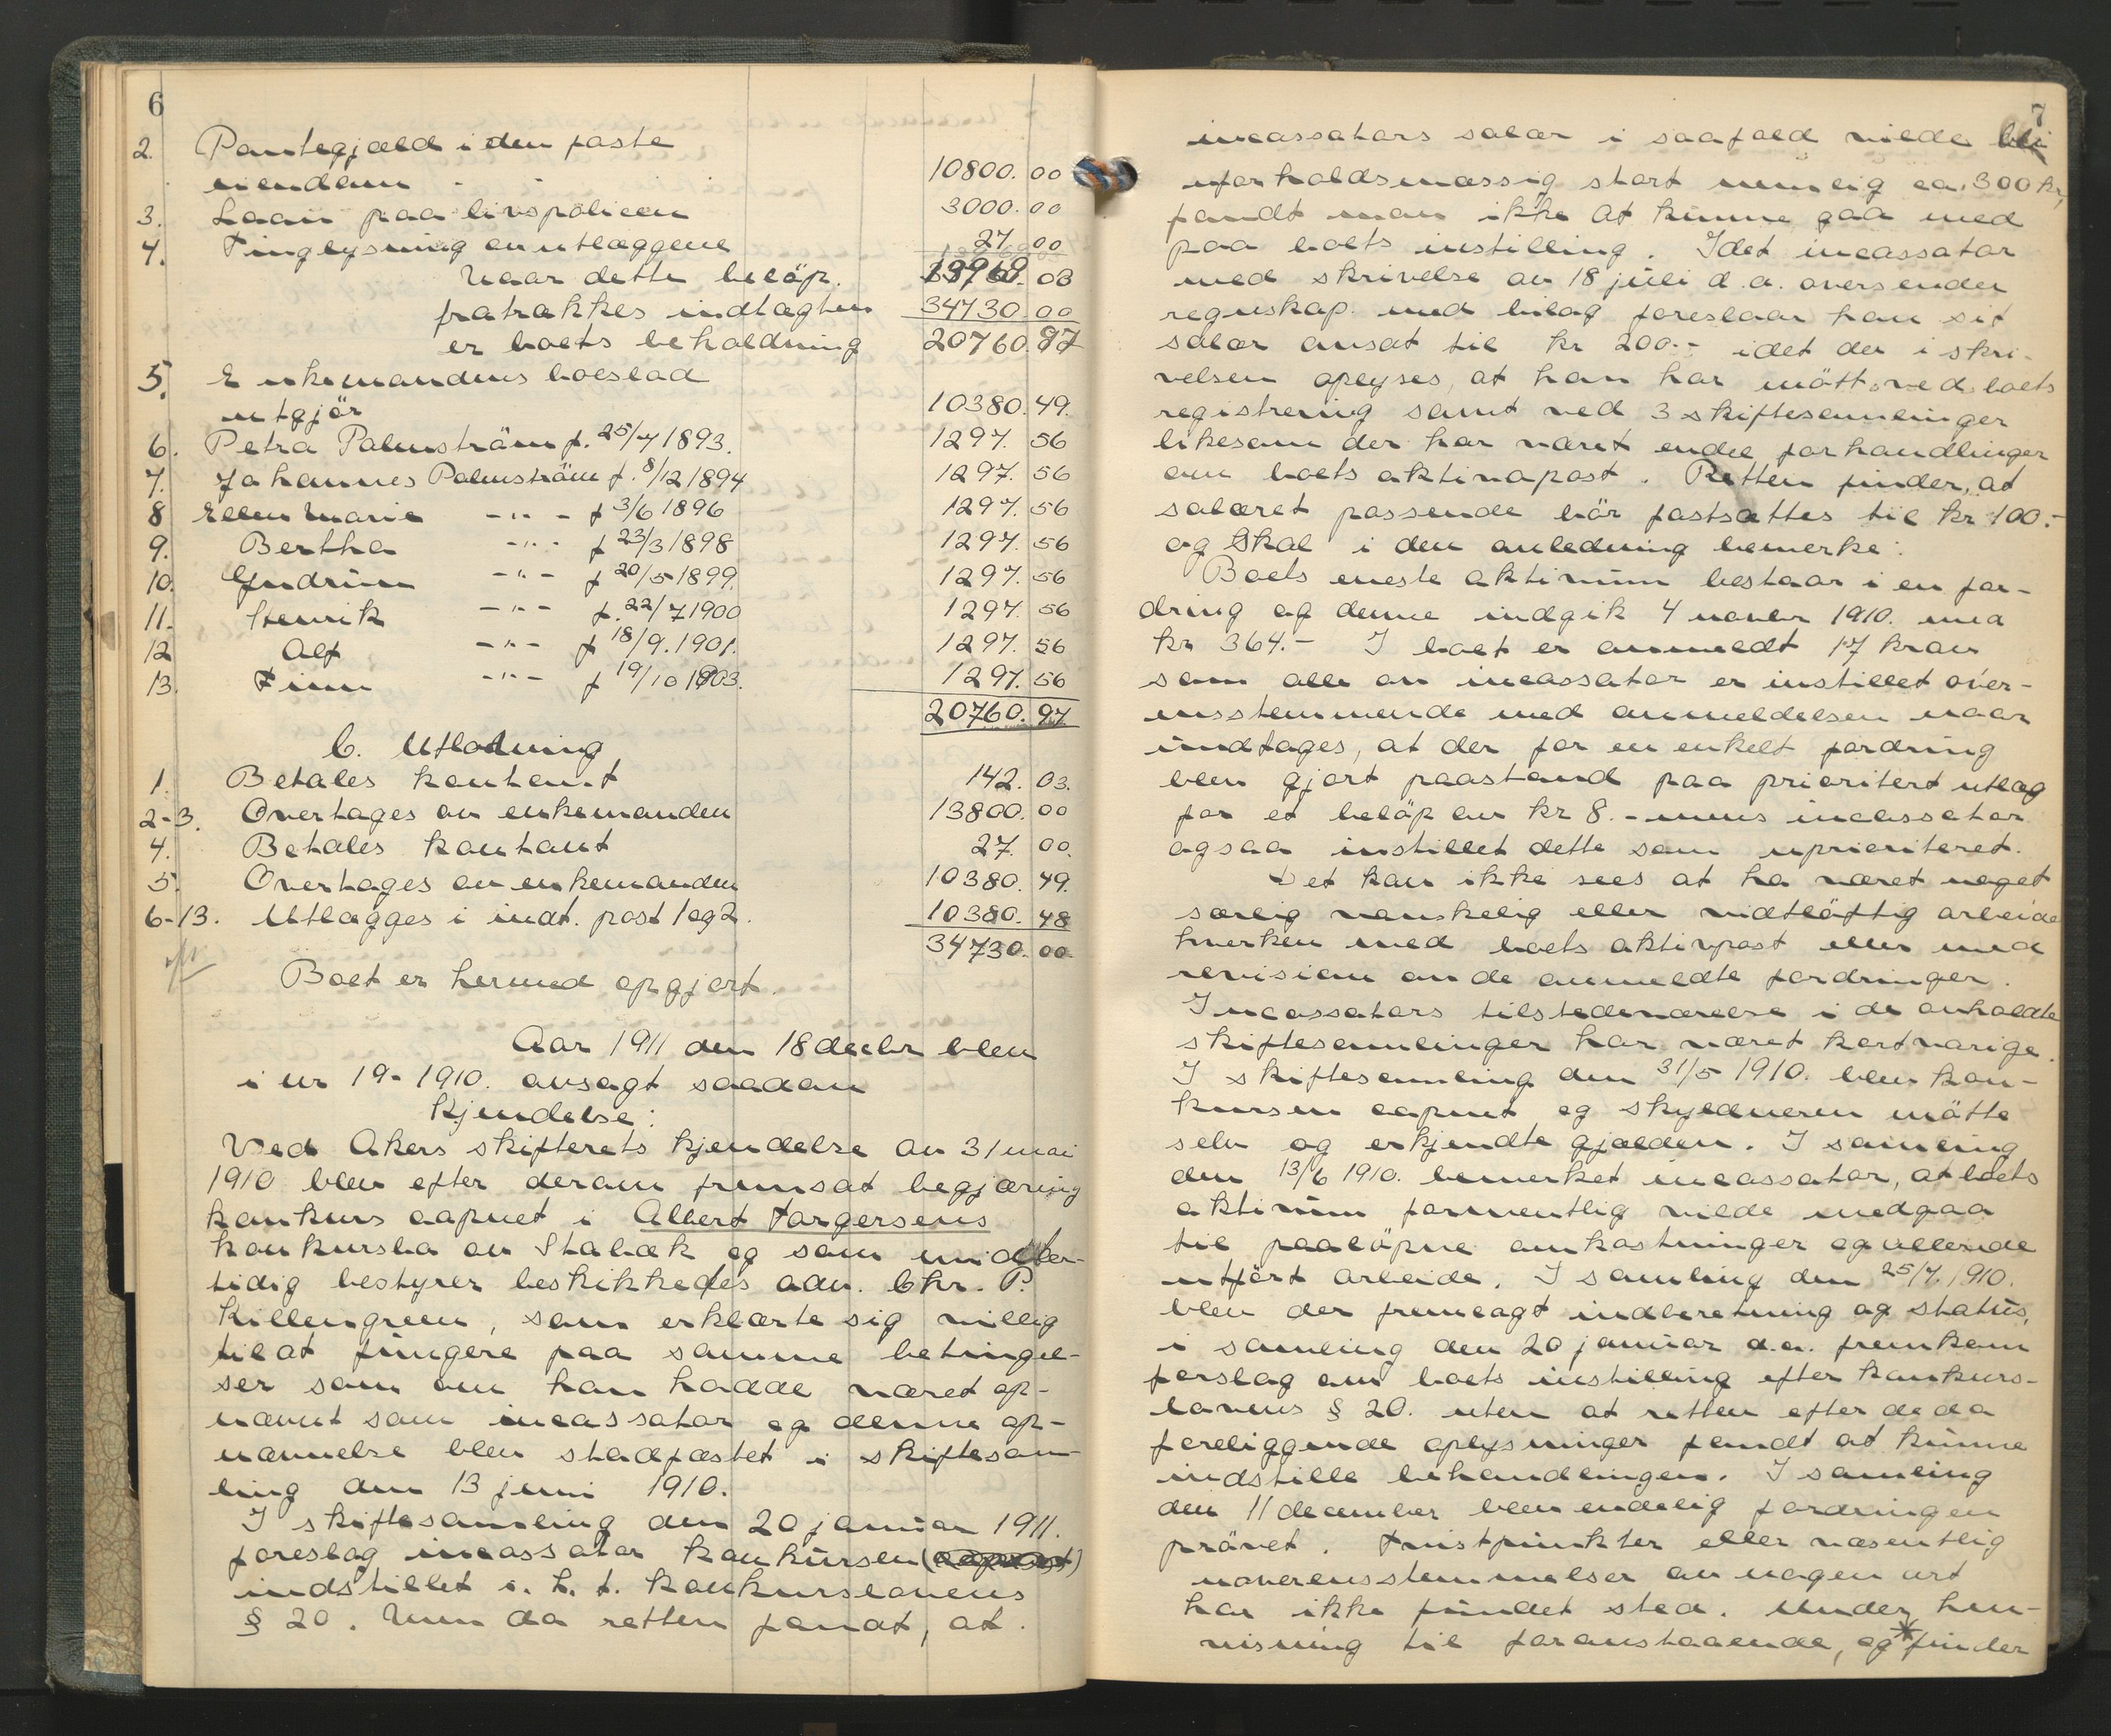 6
2. Pantegjæld i den faste
eiendom - - 10800. 00
3. Laan paa livspolicen 3000. 00
4. Tinglysning av utlæggene 27 00
Naar dette beløp. 13969. 03
fratrækkes indtægten 34730. 00
er boets beholdning 20760. 97
5. Enkemandens boeslod
utgjör 10380. 49.
6. Petra Palmström f. 25/7 1893. 1297. 56
7. Johannes Palmström f. 8/12 1894 1297. 56
8 Ellen Marie -"- f 3/6 1896 1297. 56
9. Bertha -"- f 23/3 1898 1297. 56
10. Gudrun -"- f 20/5 1899. 1297. 56
11. Henrik -"- f. 22/7 1900 1297. 56
12 Alf -"- f 18/9. 1901. 1297. 56
13. Finn -"- f 19/10 1903. 1297. 56
20760. 97
C. Utlodning
1. Betales kontant 142. 03.
2-3. Overtages av enkemanden 13800. 00
4. Betales kontant 27. 00.
5. Overtages av enkemanden 10380. 49.
6-13. Utlægges i indt. post 1 og 2. 10380. 48
34730. 00
Boet er hermed opgjort.
Aar 1911 den 18 decbr blev
i nr 19-1910. avsagt saadan
Kjendelse:
Ved Akers skifterets kjendelse av 31 mai
1910 blev efter derom fremsat begjæring
konkurs aapnet i Albert Torgersens
konkursbo av Stabæk og som midler-
tidig bestyrer beskikkedes adv. Chr. P.
Killengreen, som erklærte sig villig
til at fungere paa samme betingel-
ser som om han hadde været op-
nævnt som incassator og denne op-
nævnelse blev stadfæstet i skiftesam-
ling den 13 juni 1910.
I skiftesamling den 20 januar 1911.
foreslog incassator konkursen (aapnet)
indstillet i. h. t. konkurslovens
§ 20. Men da retten fandt, at.
7
incassators salær i saafald vilde bli
uforholdsmæssig stort nemlig ca. 300 kr,
fandt man ikke at kunne gaa med
paa boets instilling. Idet incassator
med skrivelse av 18 juli d. a. oversender
regnskap med bilag foreslaar han sit
salær ansat til kr 200.- idet der i skri-
velsen oplyses, at han har mött ved boets
registrering samt ved 3 skiftesamlinger
likesom der har været endel forhandlinger
om boets aktivapost. Retten finder, at
salæret passende bör fastsættes til kr 100.-
og skal i den anledning bemerke:
Boets eneste aktivum bestaar i en for-
dring og denne indgik 4 novbr 1910. med
kr 364.- I boet er anmeldt 17 krav
som alle av incassator er instillet over-
ensstemmende med anmeldelsen naar
undtages, at der for en enkelt fordring
blev gjort paastand paa prioritert utlæg
for et beløp av kr 8.- mens incassator
ogsaa instillet dette som uprioriteret.
Det kan ikke sees at ha været noget
særlig vanskelig eller vidtløftig arbeide
hverken med boets aktivpost eller med
revision av de anmeldte fordringer.
Incassators tilstedeværelse i de avholdte
skiftesamlinger har været kortvarige.
I skiftesamling den 31/5 1910. blev kon-
kursen aapnet og skyldneren mötte
selv og erkjendte gjælden. I samling
den 13/6 1910. bemerket incassator, at boets
aktivum formentlig vilde medgaa
til paaløpne omkostninger og allerede
utfört arbeide. I samling den 25/7. 1910.
blev der fremlagt indberetning og status,
i samling den 20 januar d.a. fremkom
forslag om boets instilling efter konkurs-
lovens § 20. uten at retten efter de da
foreliggende oplysninger fandt at kunne
indstille behandlingen. I samling
den 11 december blev endelig fordringen
prövet. Tvistpunkter eller væsentlig
uoverensstemmelser av nogen art
har ikke fundet sted. Under hen-
visning til foranstaaende, og * finder